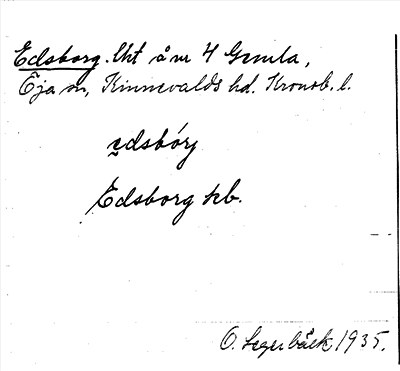 Edsborg. lht å nr 4 Gemla,
Öja sn, Kinnevalds hd. Kronob. l.
ędsbórj
Edsborg kb.
O. Segerbäck 1935.